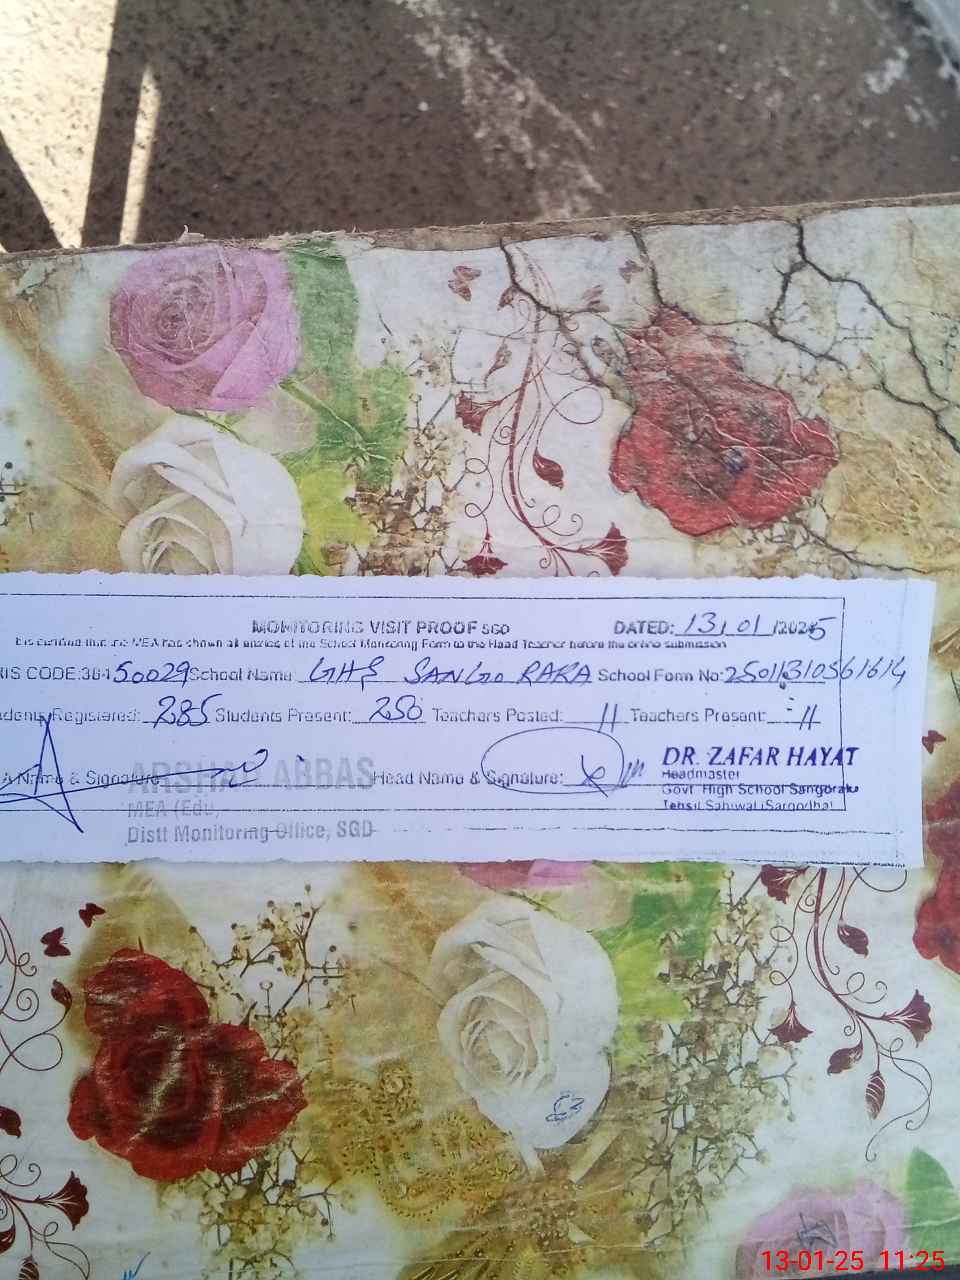 MONITORING VISIT PROOF SGD DATED: 13/01/2025
It is certified that the MEA has shown all entries of the School Monitoring Form to the Head Teacher before the online submission
IS CODE:384 50029 School Name GHS SANGO RARA School Form No: 25011310561614
dents Registered: 285 Students Present: 250 Teachers Posted: 11 Teachers Present: 11
A Name & Signature ARSHAD ABBAS Head Name & Signature: DR. ZAFAR HAYAT
MEA (Edu) Headmaster
Distt Monitoring Office, SGD Govt. High School Sangoraka
Tehsil Sahiwal (Sargodha)
13-01-25 11:25